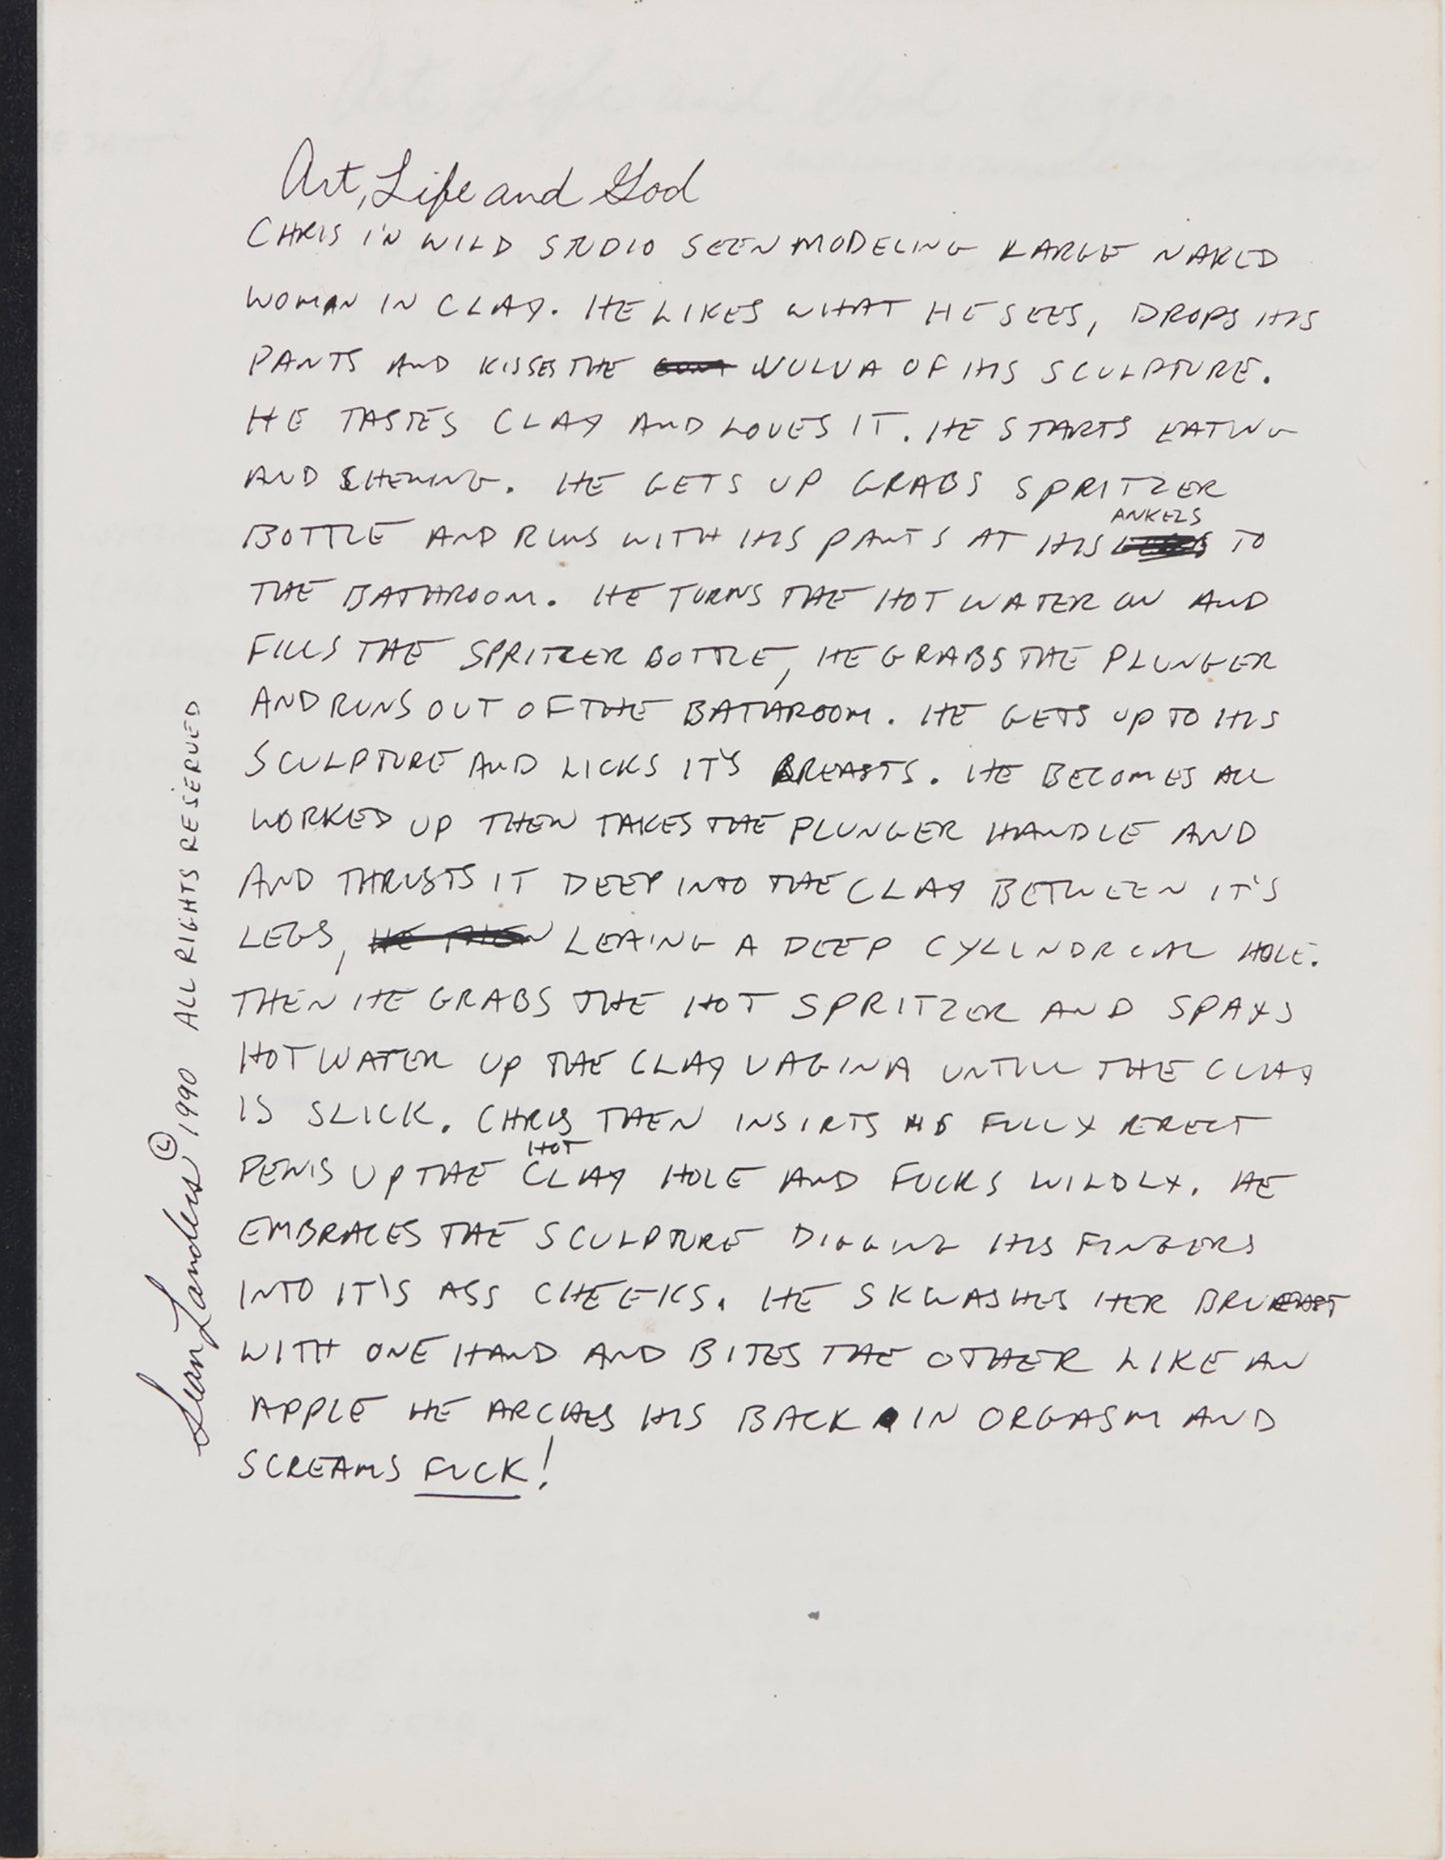 Art, Life and God
CHRIS IN WILD STUDIO SEEN MODELING LARGE NAKED
WOMAN IN CLAY. HE LIKES WHAT HE SEES, DROPS HIS
PANTS AND KISSES THE VULVA OF HIS SCULPTURE.
HE TASTES CLAY AND LOVES IT. HE STARTS EATING
AND CHEWING. HE GETS UP GRABS SPRITZER
BOTTLE AND RUNS WITH HIS PANTS AT HIS ANKELS TO
THE BATHROOM. HE TURNS THE HOT WATER ON AND
FILLS THE SPRITZER BOTTLE, HE GRABS THE PLUNGER
AND RUNS OUT OF THE BATHROOM. HE GETS UP TO HIS
SCULPTURE AND LICKS IT'S BREASTS. HE BECOMES ALL
WORKED UP THEN TAKES THE PLUNGER HANDLE AND
AND THRUSTS IT DEEP INTO THE CLAY BETWEEN IT'S
LEGS, LEAING A DEEP CYLINDRICAL HOLE.
THEN HE GRABS THE HOT SPRITZER AND SPAYS
HOT WATER UP THE CLAY VAGINA UNTILL THE CLAY
IS SLICK. CHRIS THEN INSIRTS HIS FULLY ERECT
PENIS UP THE HOT CLAY HOLE AND FUCKS WILDLY. HE
EMBRACES THE SCULPTURE DIGGING HIS FINGERS
INTO IT'S ASS CHEEKS. HE SKWASHES HER
WITH ONE HAND AND BITES THE OTHER LIKE AN
APPLE HE ARCHES HIS BACK IN ORGASM AND
SCREAMS FUCK!
Sean Landers © 1990 ALL RIGHTS RESERVED